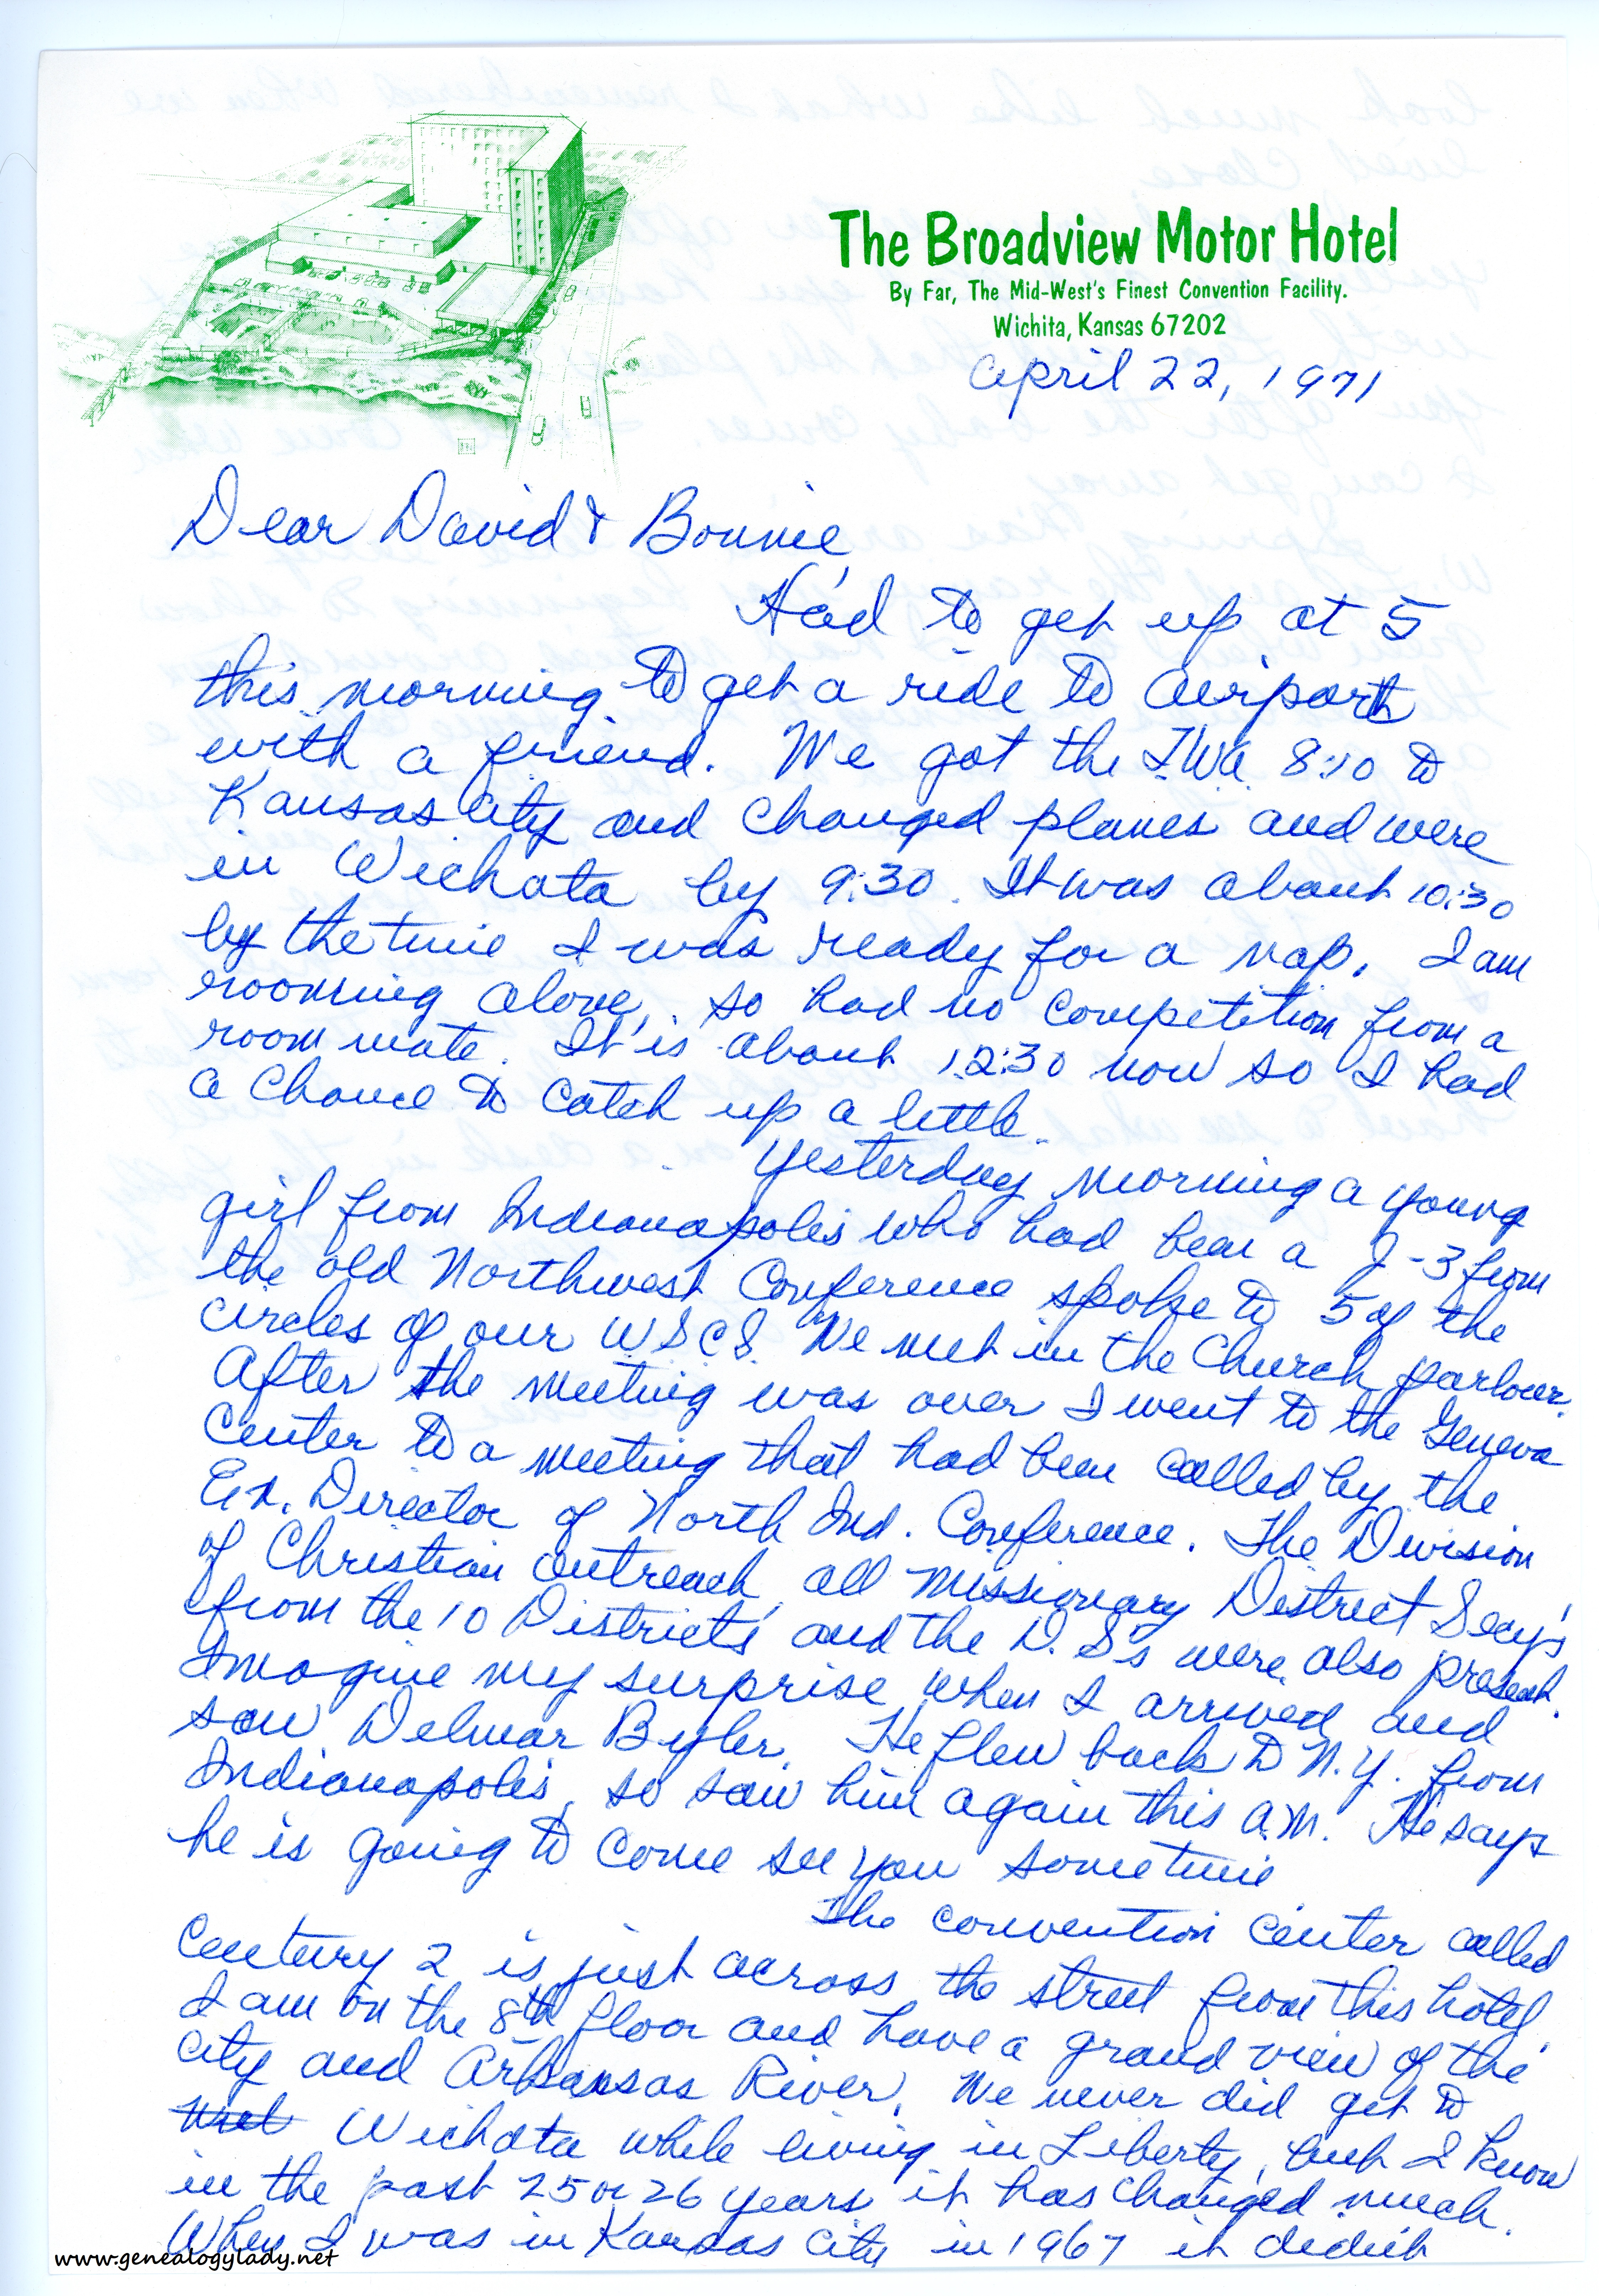 The Broadview Motor Hotel
By Far, The Mid-West's Finest Convention Facility.
Wichita, Kansas 67202
April 22, 1971
Dear David & Bonnie,
Had to get up at 5
this morning to get a ride to airport
with a friend. We got the T.W.A. 8:10 to
Kansas City and changed planes and were
in Wichata by 9:30. It was about 10:30
by the time I was ready for a nap. I am
rooming alone, so had no competition from a
room mate. It is about 12:30 now so I had
a chance to catch up a little.
Yesterday morning a young
girl from Indianapolis who had been a I-3 from
the old Northwest Conference spoke to 5 of the
circles of our WSCS. We met in the Church parlour.
After the meeting was over I went to the Geneva
Center to a meeting that had been called by the
Ex. Director of North Ind. Conference. The Division
of Christian Outreach, all Missionary District Secy's
from the 10 Districts and the D. S's were also present.
Imagine my surprise when I arrived and
saw Delmar Byler. He flew back to N.Y. from
Indianapolis, so saw him again this a.m. He says
he is going to come see you sometime
The convention center called
Century 2 is just across the street from this hotel.
I am on the 8th floor and have a grand view of the
city and Arkansas River. We never did get to
Wichata while living in Liberty, but I know
in the past 25 or 26 years it has changed much.
When I was in Kansas City in 1967 it didn't
www.genealogylady.net